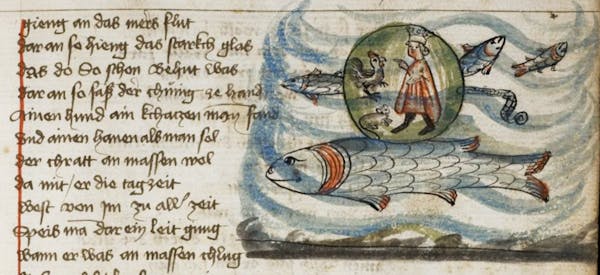 gieng an das mers flut
dar an so hieng das starkch glas
das do so schon behut was
dar an so saß der chünig ze hand
Ainen hund ain kchatzen man fand
Vnd ainen hanen als man sol
der chratt an massen wol
da mit er die tagzeit
west von im zu all zeit
Speis man dar ein leit gnug
wann er was an massen chlug